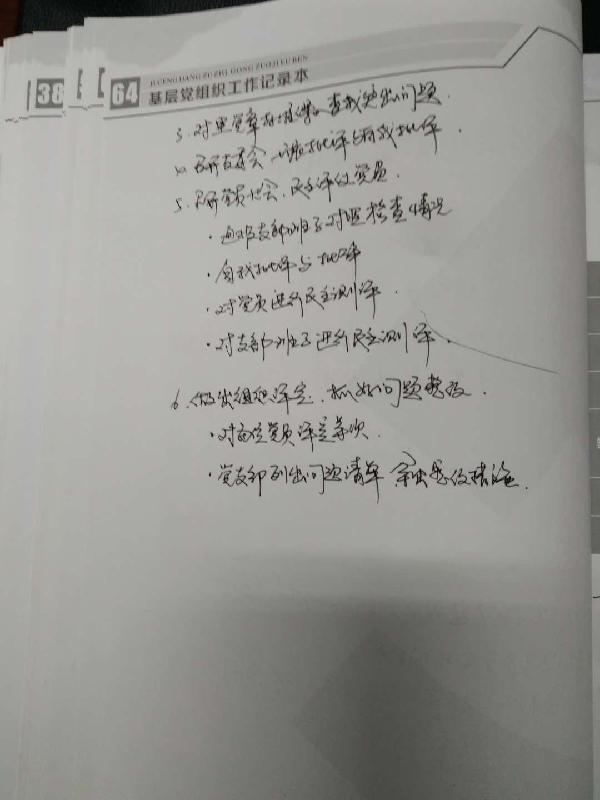 38
64
JI CENG DANG ZU ZHI GONG ZUO JI LU BEN
基层党组织工作记录本
3. 对照党章标准，查找突出问题
4. 召开支委会，批评与自我批评．
5. 召开党员大会，民主评议党员．
・通报支部班子对照检查情况
・自我批评与批评
・对党员进行民主测评．
・对支部班子进行民主测评．
6. 做出组织评定，抓好问题整改．
・对每位党员评定等次．
・党支部列出问题清单